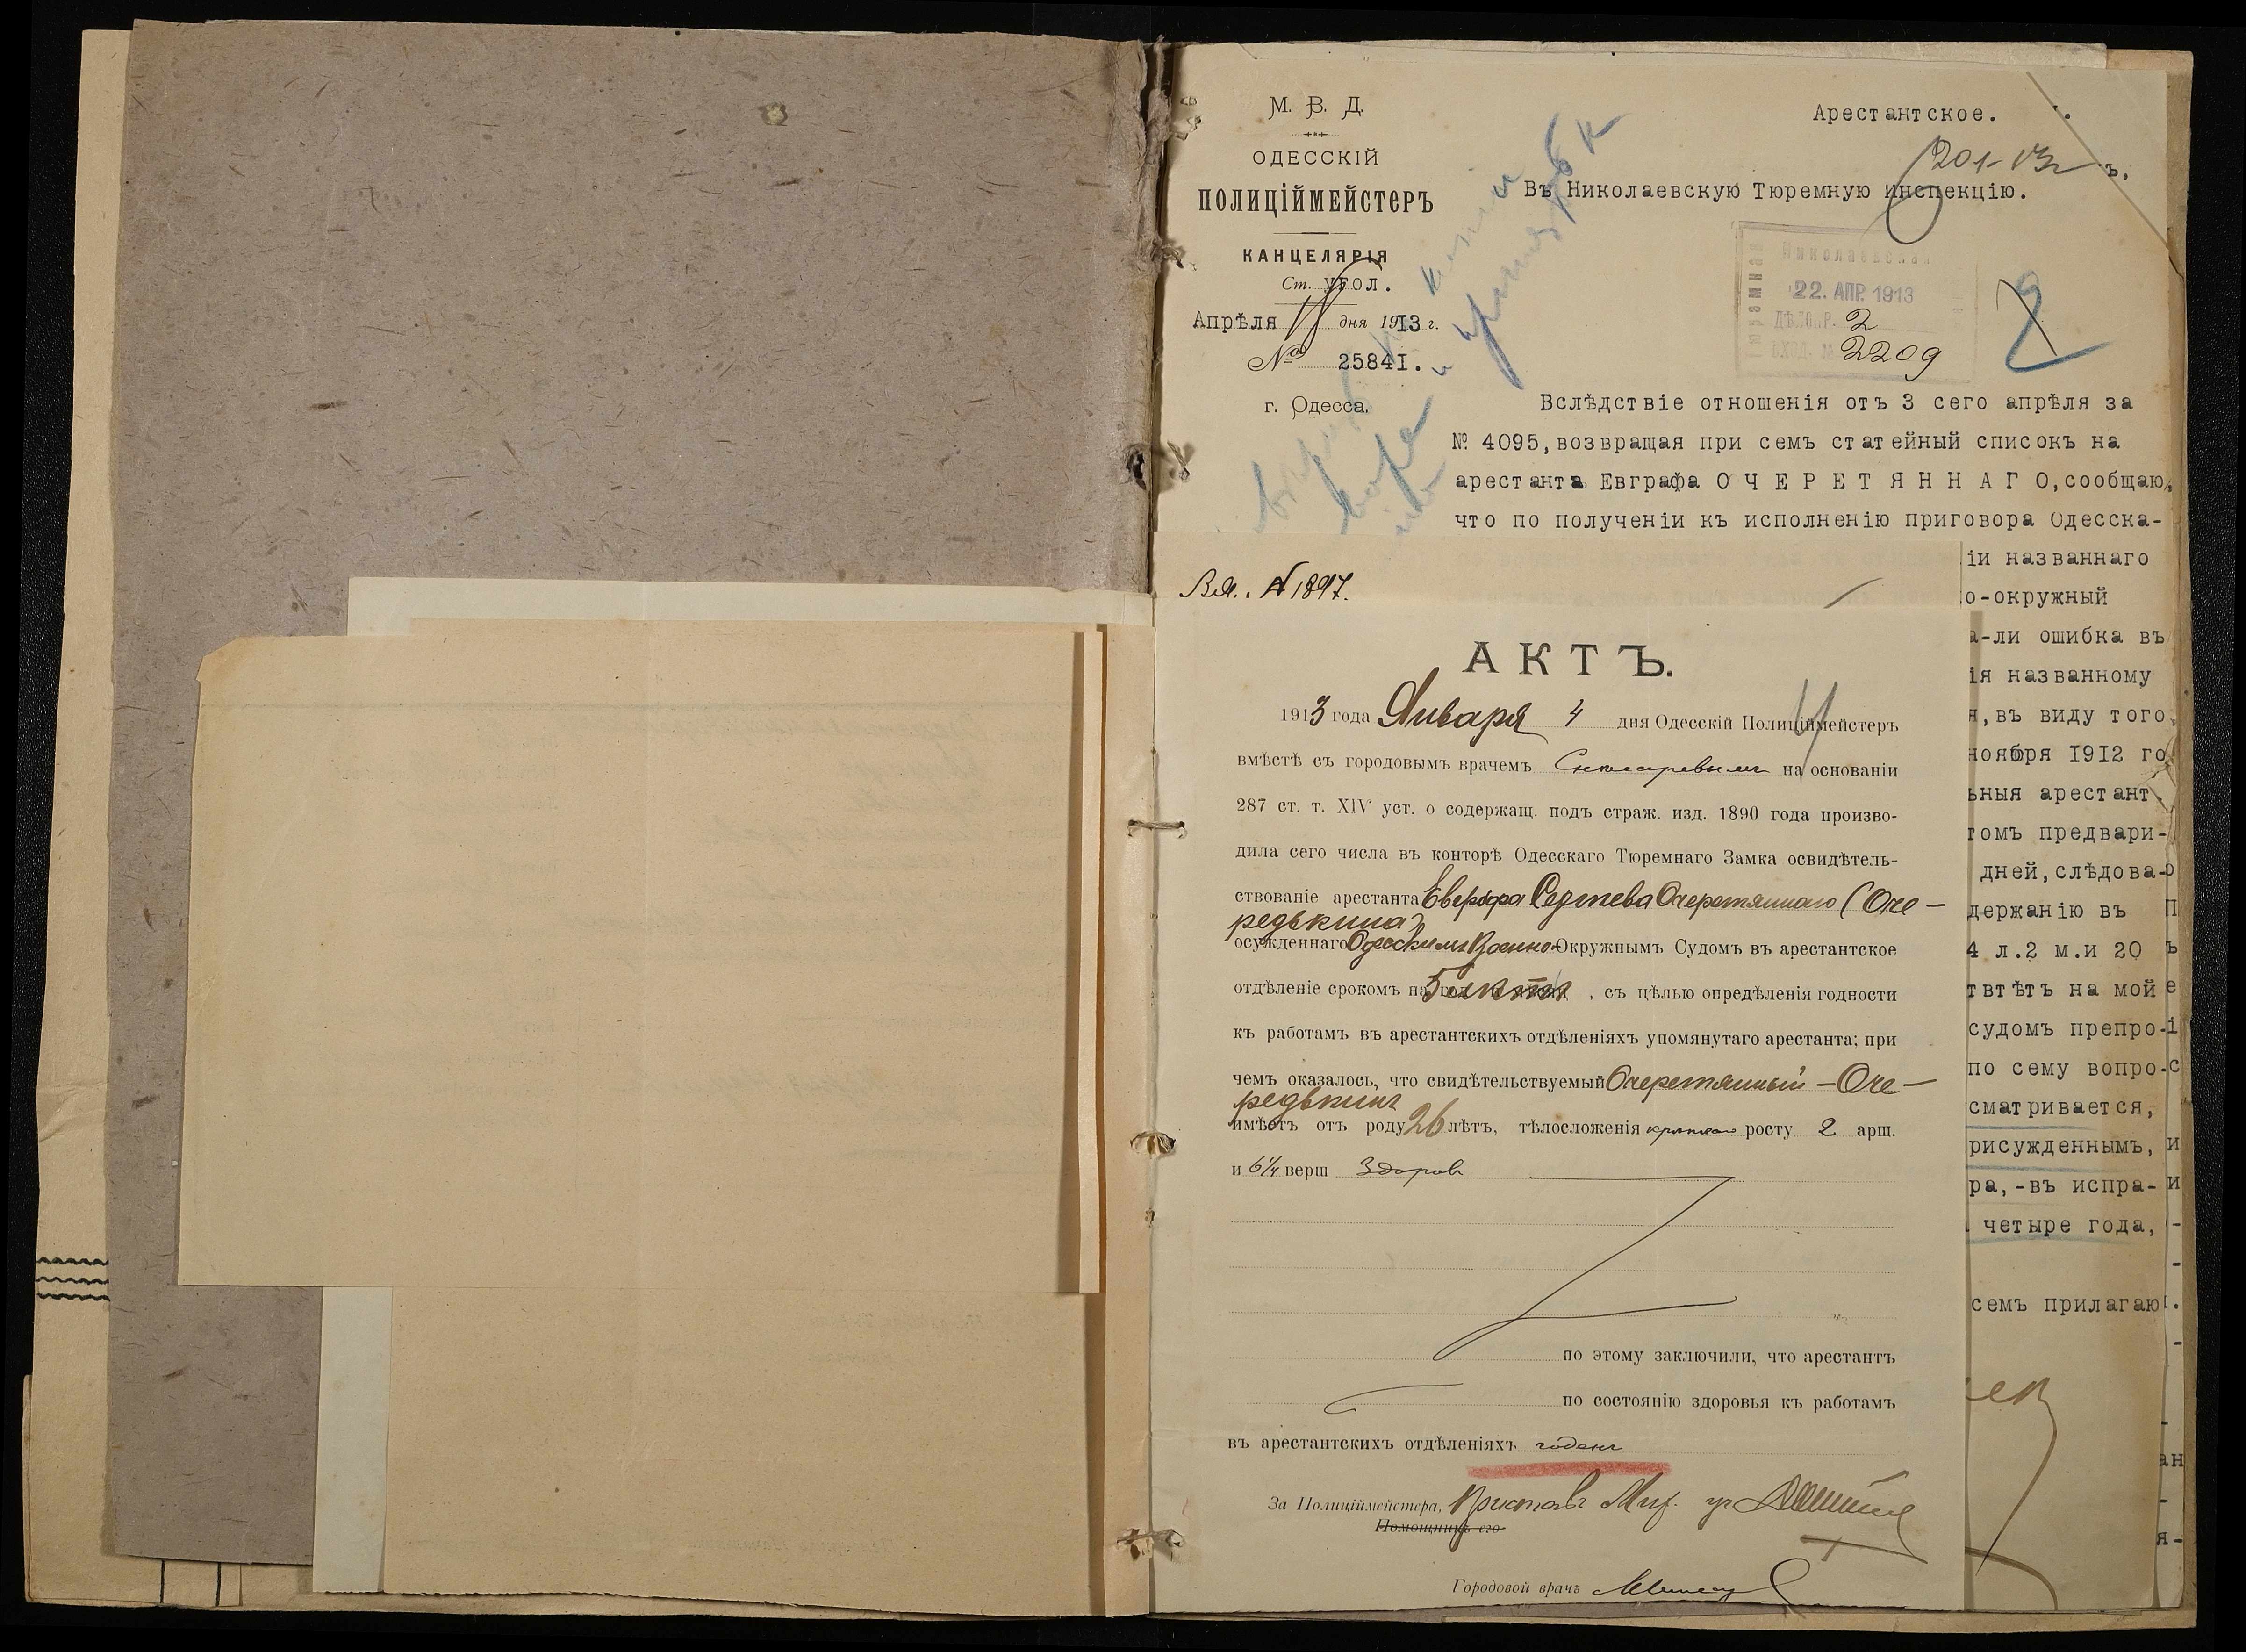 М. В. Д.
ОДЕССКІЙ
ПОЛИЦІЙМЕЙСТЕРЪ
КАНЦЕЛЯРІЯ
Ст. УГОЛ.
Апрѣля 18 дня 1913 г.
№ 25841.
г. Одесса.
Арестантское.
201-13
Въ Николаевскую Тюремную инспекцію.
Николаевская
22. АПР. 1913
ДѢЛОПР. 2
ВХОД. № 2209
2
Вслѣдствіе отношенія отъ 3 сего апрѣля за
№ 4095, возвращая при семъ статейный списокъ на
арестанта Евграфа О Ч Е Р Е Т Я Н Н А Г О, сообщаю,
что по полученіи къ исполненію приговора Одесска-
іи названнаго
о-окружный
а-ли ошибка въ
ія названному
я, въ виду того,
ноября 1912 го
ьныя арестант
томъ предвари-
дней, слѣдова-
держанію въ
4 л. 2 м. и 20
твтѣтъ на мой
судомъ препро-
по сему вопро-
сматривается,
рисужденнымъ,
ра,-въ испра-
четыре года,
семъ прилагаю
Вя. № 1897.
АКТЪ.
1913 года Января 4 дня Одесскій Полиціймейстеръ
вмѣстѣ съ городовымъ врачемъ на основаніи
287 ст. т. XIV уст. о содержащ. подъ страж. изд. 1890 года произво-
дила сего числа въ конторѣ Одесскаго Тюремнаго Замка освидѣтель-
ствованіе арестанта Евграфа Сергеева Очеретяннаго (Оче-
редькина)
осужденнаго Одесскимъ Военно-Окружнымъ Судомъ въ арестантское
отдѣленіе срокомъ на 5 лѣтъ, съ цѣлью опредѣленія годности
къ работамъ въ арестантскихъ отдѣленіяхъ упомянутаго арестанта; при
чемъ оказалось, что свидѣтельствуемый Очеретянный - Оче-
редькинъ
имѣетъ отъ роду 26 лѣтъ, тѣлосложенія крѣпкаго росту 2 арш.
и 6 1/4 верш Здоровъ
по этому заключили, что арестантъ
по состоянію здоровья къ работамъ
въ арестантскихъ отдѣленіяхъ годенъ
За Полиціймейстера, Приставъ Мих. уч.
Помощникъ его
Городовой врачъ